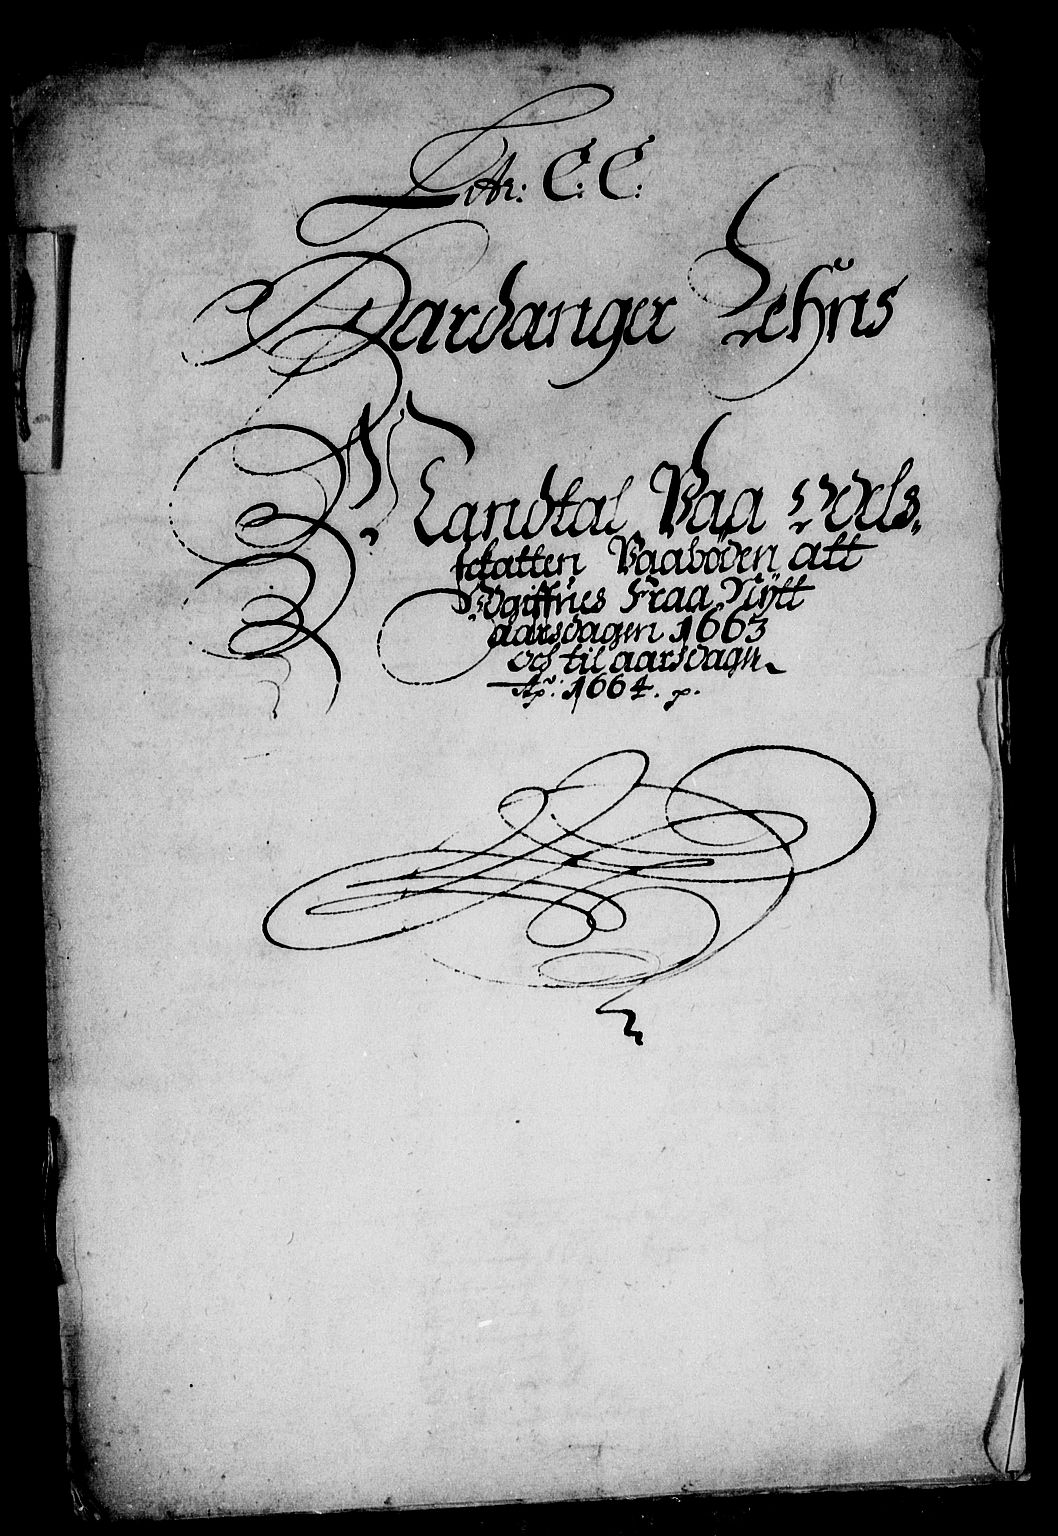 Litr: C: C:
Hardanger Lehns
Mandtal Paa Odels
schatten Paaböden att
Udgiffues Fraa Nÿtt
aarsdagen 1663
och til aarsdagn
Aō: 1664. p.